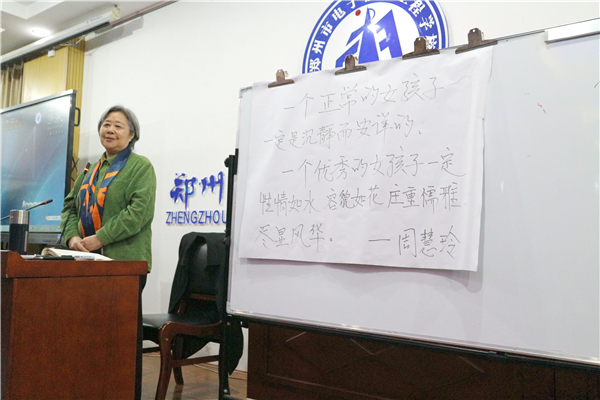 郑州市电子
理学校
郑州
ZHENGZHOU
一个正常的女孩子
一定是沉静而安详的、
一个优秀的女孩子一定
性情如水 容貌如花 庄重儒雅
尽显风华。 ——周慧玲